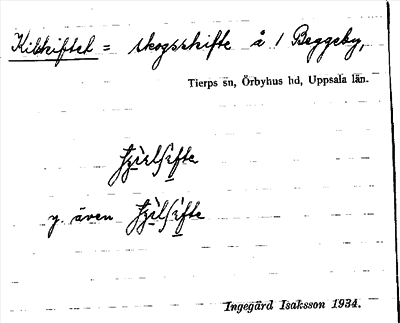 Kilskiftet = skogsskifte å / Beggeby,
Tierps sn, Örbyhus hd, Uppsala län.
y. även
Ingegärd Isaksson 1934.